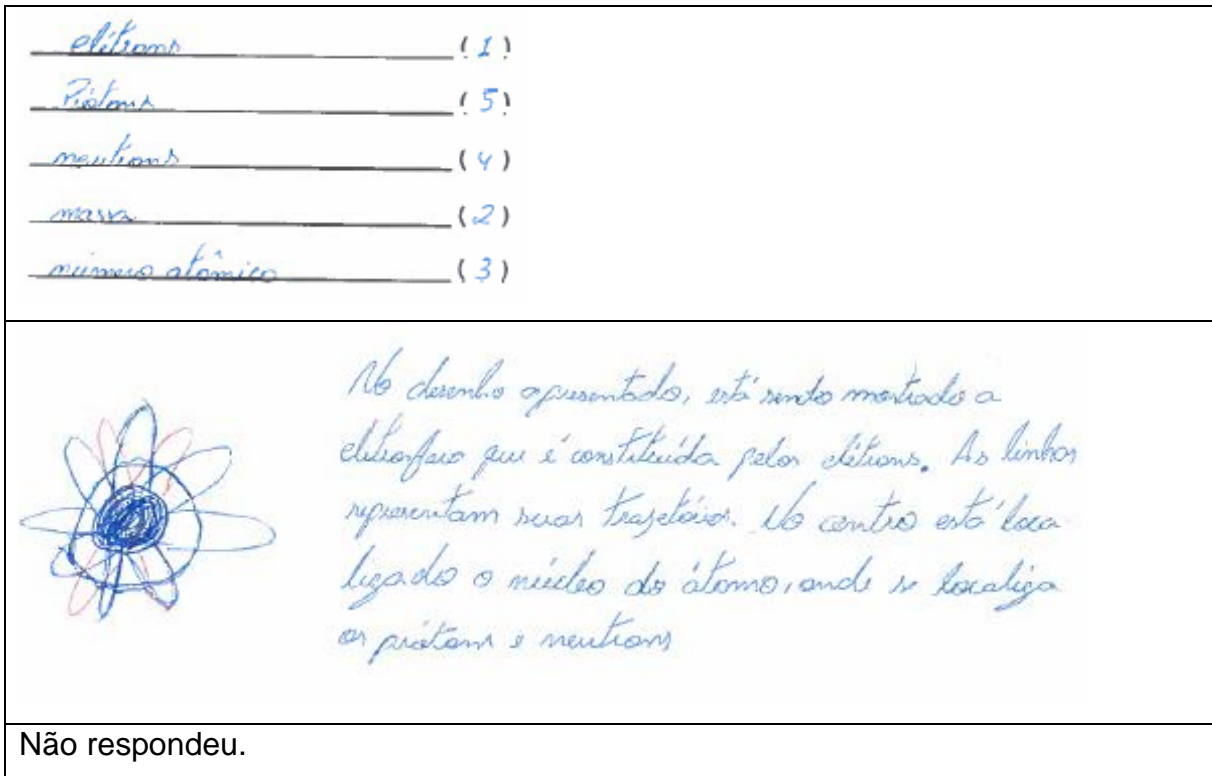 elétrons (1)
Prótons (5)
neutrons (4)
massa (2)
número atômico (3)
No desenho apresentado, está sendo mostrado a
eletrosfera que é constituída pelos elétrons. As linhas
representam suas trajetórias. No centro está loca
lizado o núcleo do átomo, onde se localiza
os prótons e neutrons
Não respondeu.